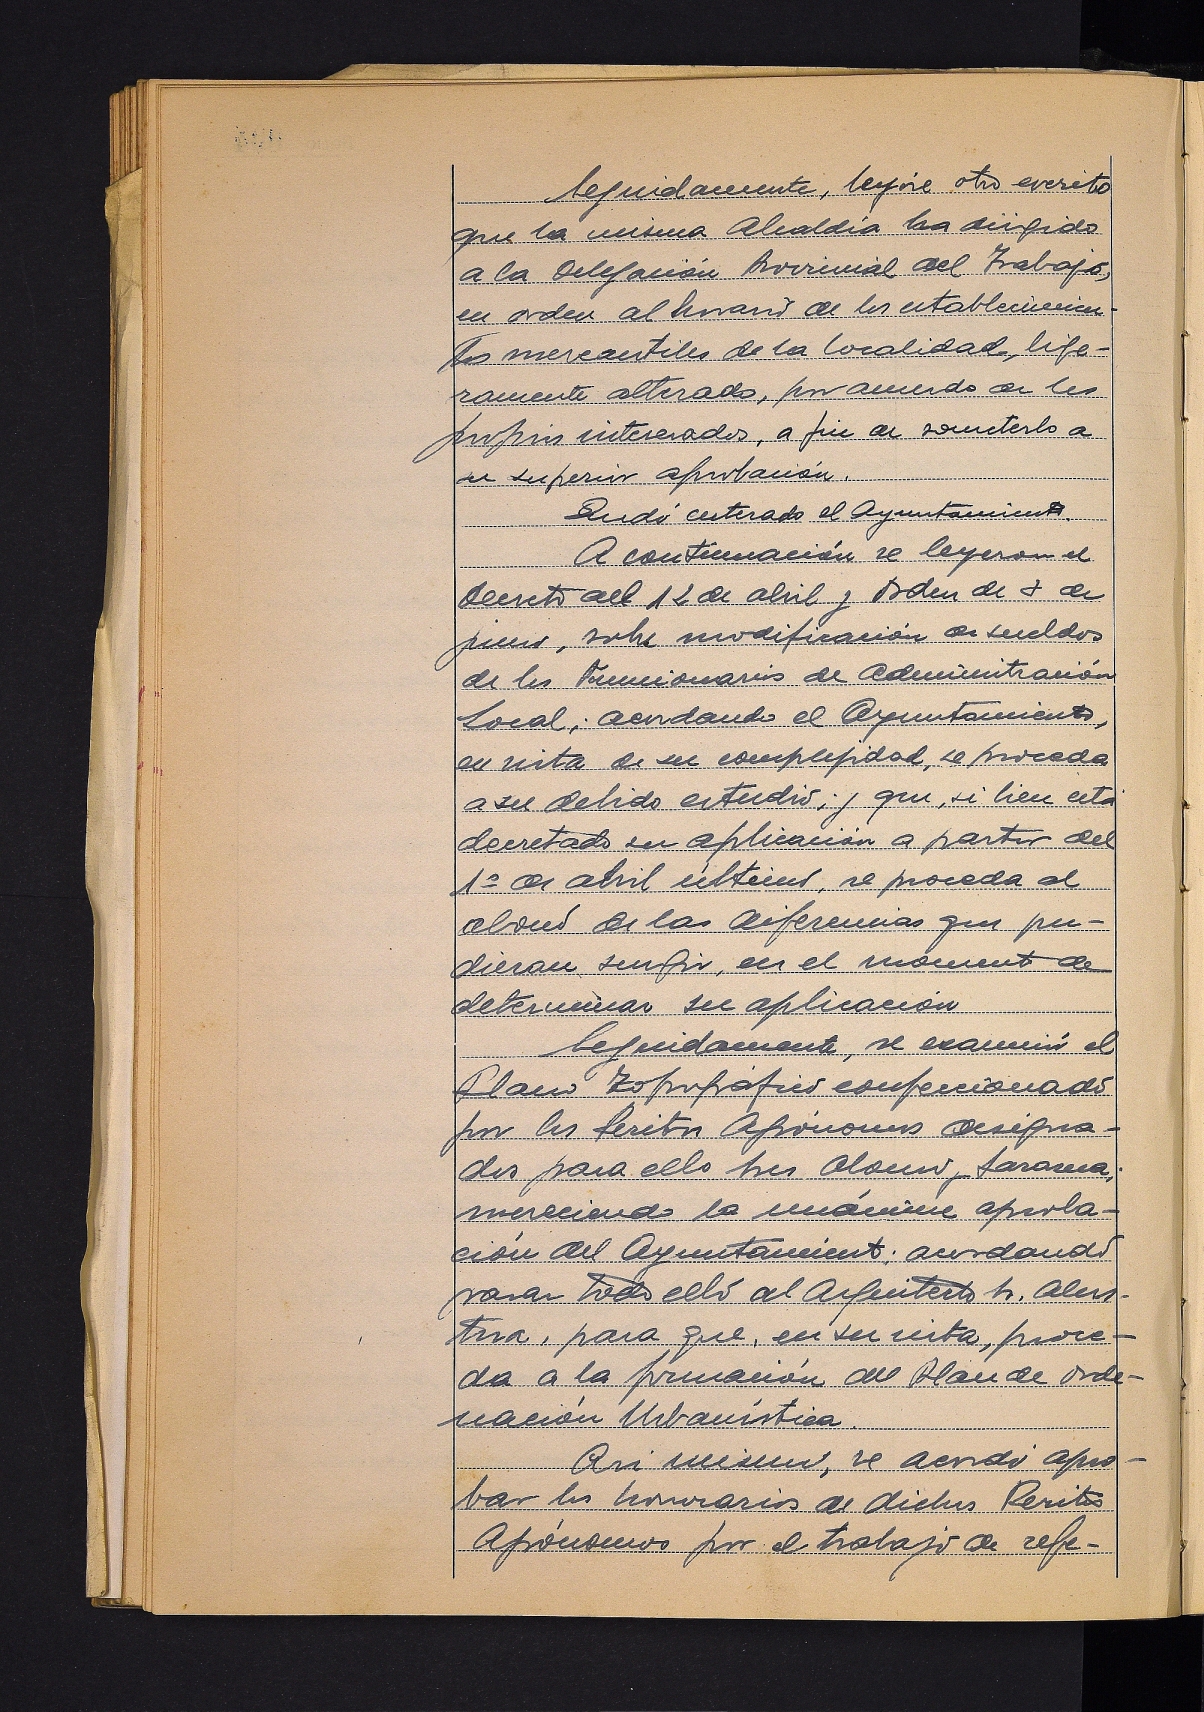 Seguidamente, leyóse otro escrito
que la misma Alcaldía ha dirigido
a la Delegación Provincial del Trabajo,
en orden al horario de los establecimien-
tos mercantiles de la localidad, lige-
ramente alterado, por acuerdo de los
propios interesados, a fin de someterlo a
su superior aprobación.
Quedó enterado el Ayuntamiento.
A continuación se leyeron el
Decreto del 12 de abril y Orden de 8 de
junio, sobre modificación de sueldos
de los Funcionarios de Administración
Local; acordando el Ayuntamiento,
en vista de su complejidad, se proceda
a su debido estudio; y que, si bien está
decretado su aplicación a partir del
1º de abril último, se proceda al
abono de las diferencias que pu-
dieran surgir, en el momento de
determinar su aplicación
Seguidamente, se examinó el
Plano Topográfico confeccionado
por los Peritos Agrónomos designa-
dos para ello Sres Alonso y Sarasua;
mereciendo la unánime aproba-
ción del Ayuntamiento; acordando
pasar todo ello al Arquitecto Sr.
para que, en su vista, proce-
da a la formación del Plan de Orde-
nación Urbanística.
Asi mismo, se acordó apro-
bar los honorarios de dichos Peritos
Agrónomos por el trabajo de refe-